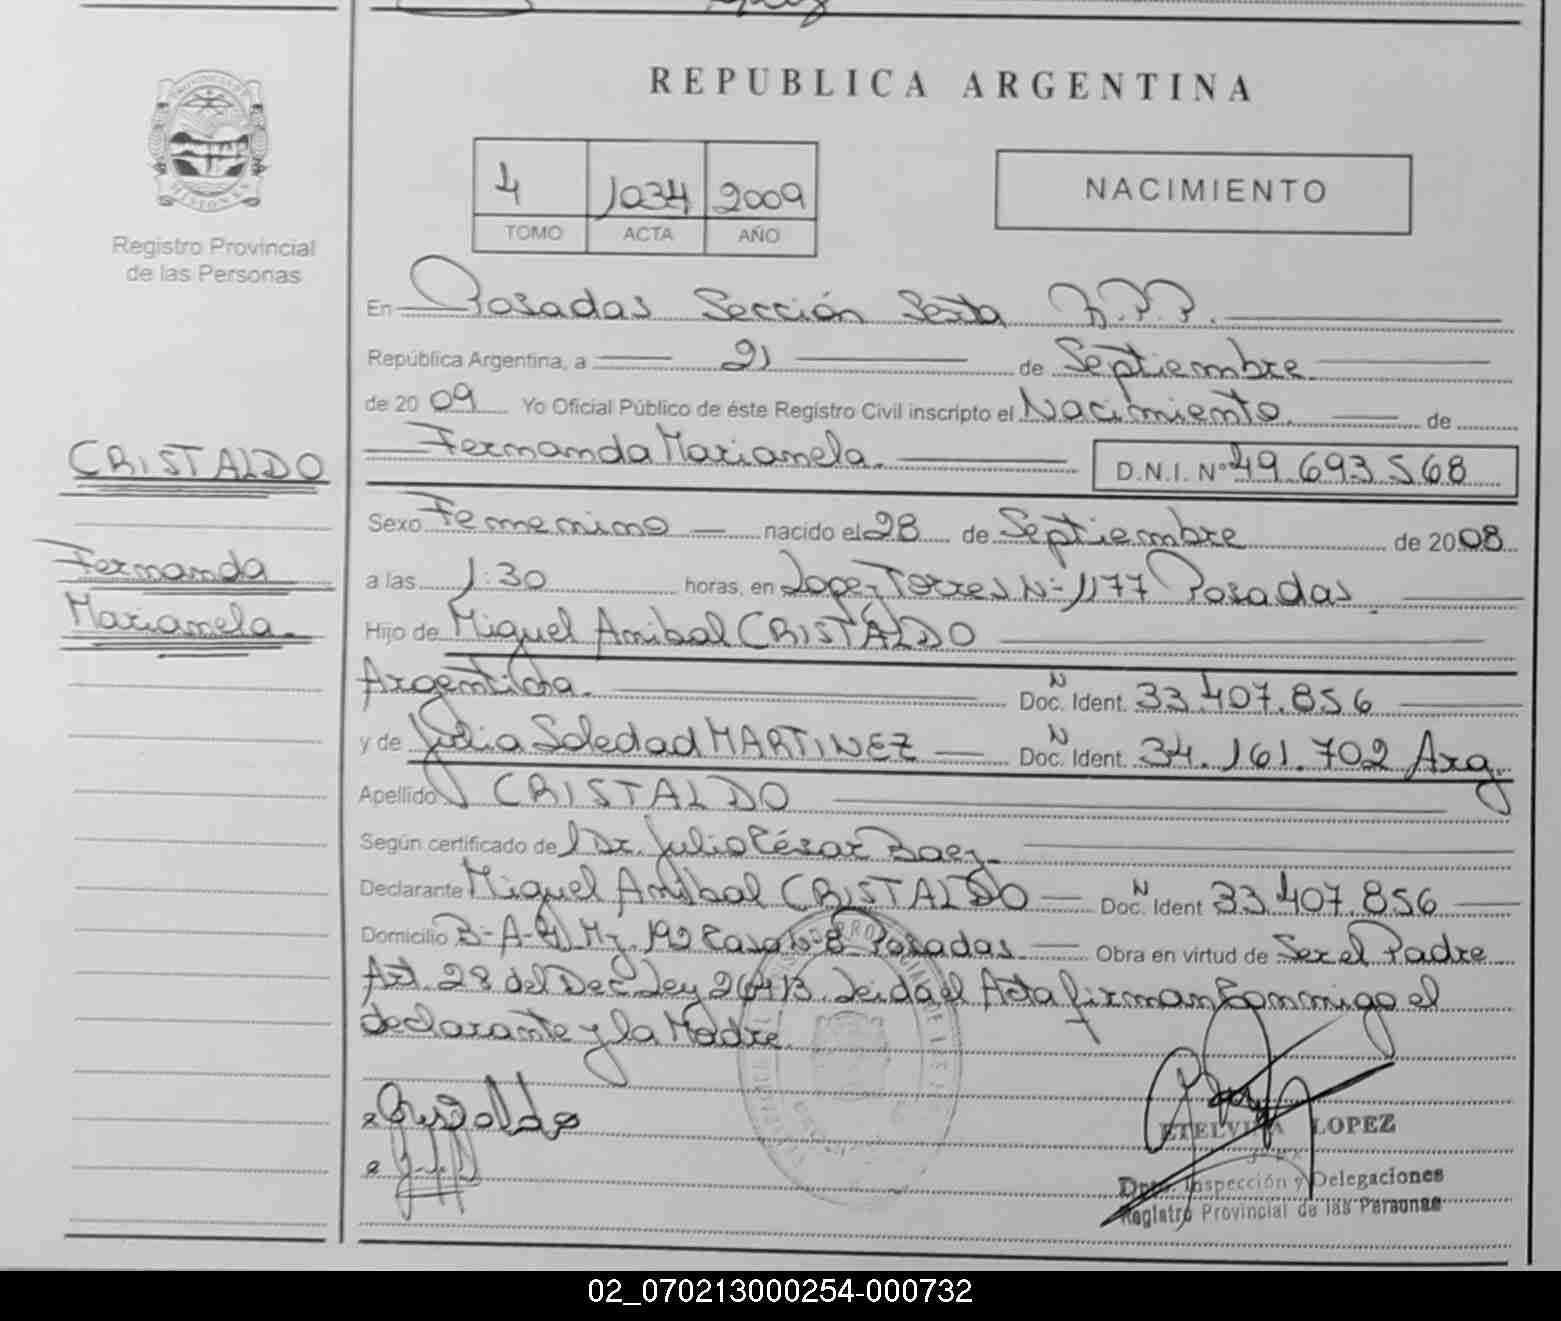 REPUBLICA ARGENTINA
4 1034 2009
TOMO ACTA AÑO
NACIMIENTO
MISIONES
Registro Provincial
de las Personas
En Posadas Sección Sexta R.P.P.
República Argentina, a 21 de Septiembre
de 2009 Yo Oficial Público de éste Registro Civil inscripto el Nacimiento de
Fernanda Marianela. D.N.I. Nº 49.693.568
CRISTALDO
Fernanda
Marianela.
Sexo Femenino nacido el 28 de Septiembre de 2008
a las 1:30 horas, en Lopez Torres Nº 1177 Posadas.
Hijo de Miguel Anibal CRISTALDO
Argentina. Doc. N Ident. 33.407.856
y de Julia Soledad MARTINEZ Doc. N Ident. 34.161.702 Arg.
Apellido CRISTALDO
Según certificado del Dr. Julio César Baez.
Declarante Miguel Anibal CRISTALDO Doc. N Ident 33.407.856
Domicilio B- A-4 Mz. 192 Casa Posadas Obra en virtud de Ser el Padre
Art. 28 del Dec Ley Leida el Acta firman Conmigo el
declarante y la Madre.
Cristaldo
ETELVINA LOPEZ
Dpto. Inspección y Delegaciones
Registro Provincial de las Personas
02_070213000254-000732